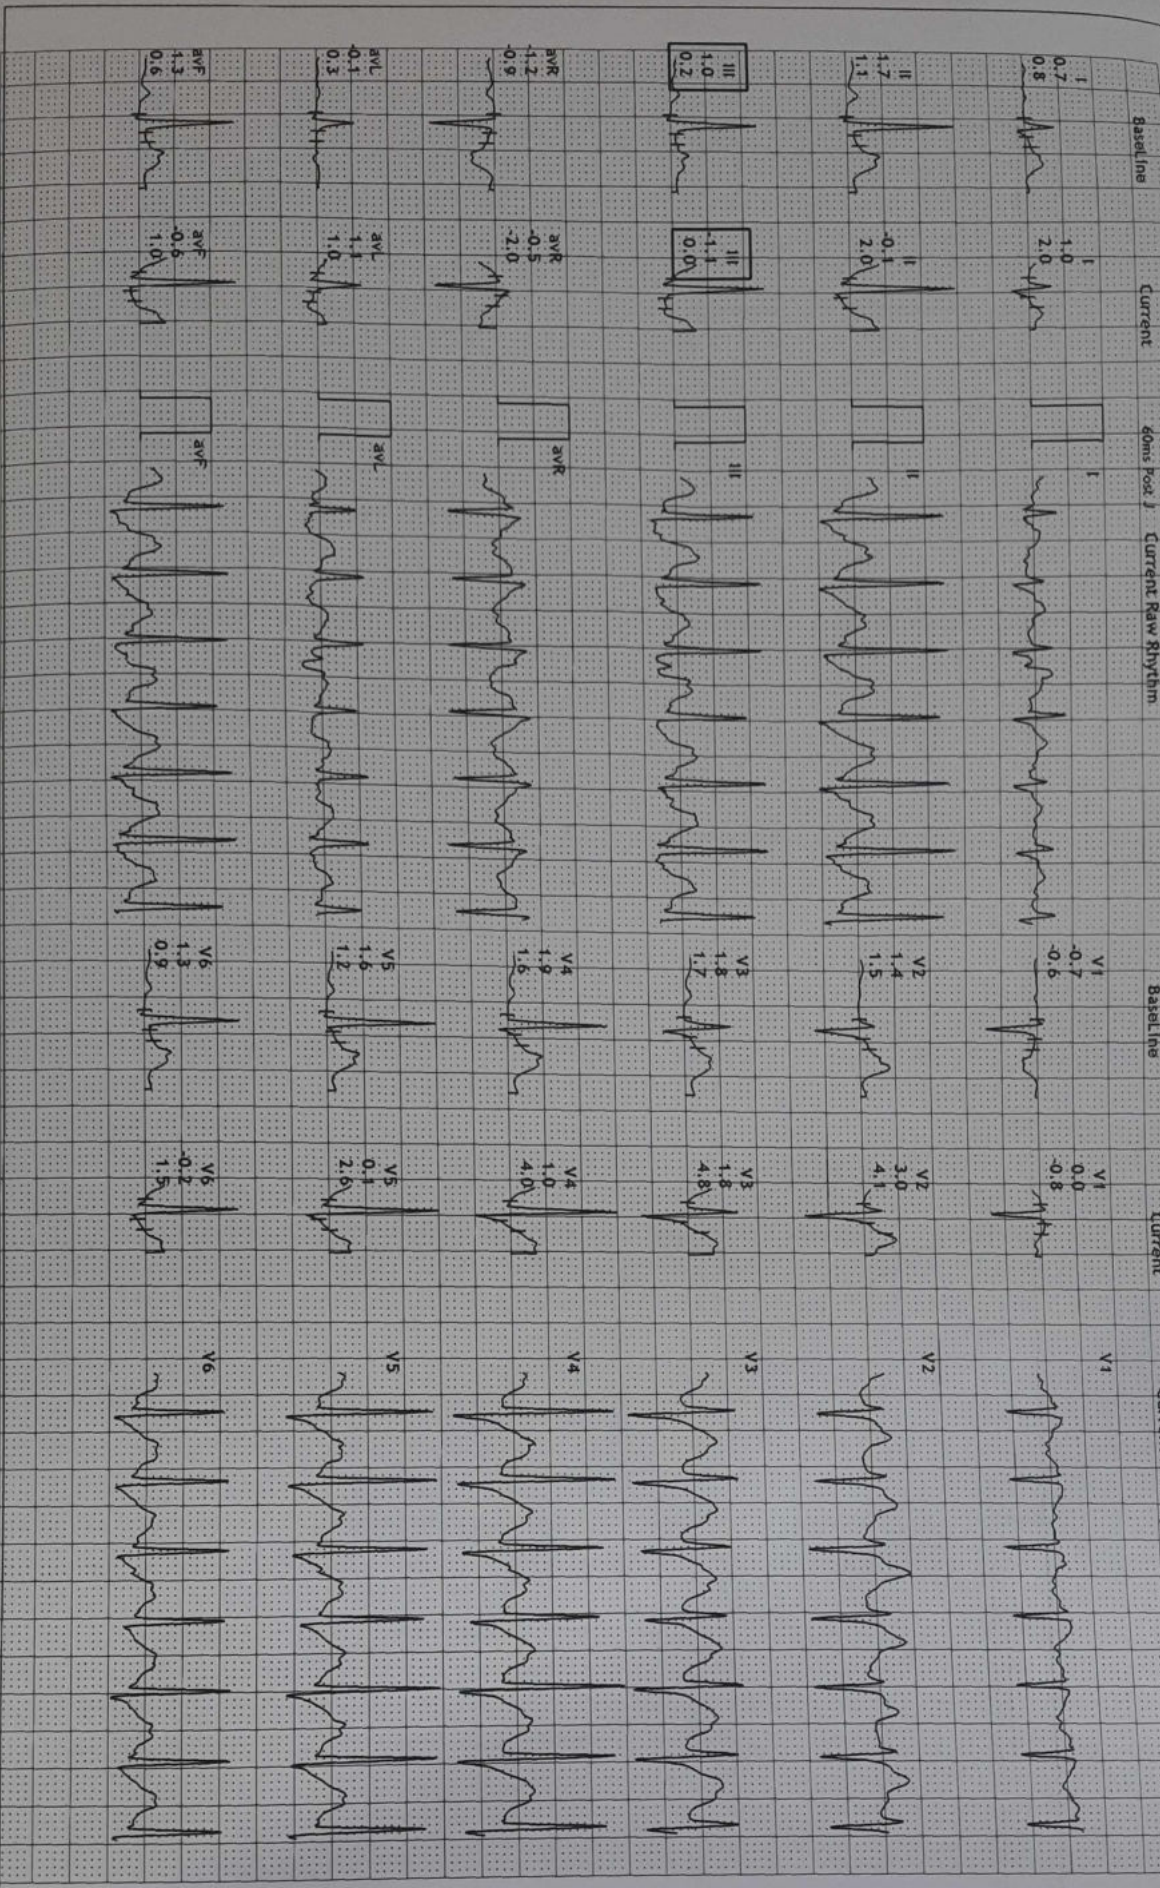 BaseLine
Current
60ms Post J
Current Raw Rhythm
BaseLine
Current
I
0.7
0.8
I
1.0
2.0
I
V1
-0.7
-0.6
V1
0.0
-0.8
V1
II
1.7
1.1
II
-0.1
2.0
II
V2
1.4
1.5
V2
3.0
4.1
V2
III
1.0
0.2
III
-1.1
0.0
III
V3
1.8
1.7
V3
1.8
4.8
V3
avR
-1.2
-0.9
avR
-0.5
-2.0
avR
V4
1.9
1.6
V4
1.0
4.0
V4
avL
-0.1
0.3
avL
1.1
1.0
avL
V5
1.6
1.2
V5
0.1
2.6
V5
avF
1.3
0.6
avF
-0.6
1.0
avF
V6
1.3
0.9
V6
-0.2
1.5
V6